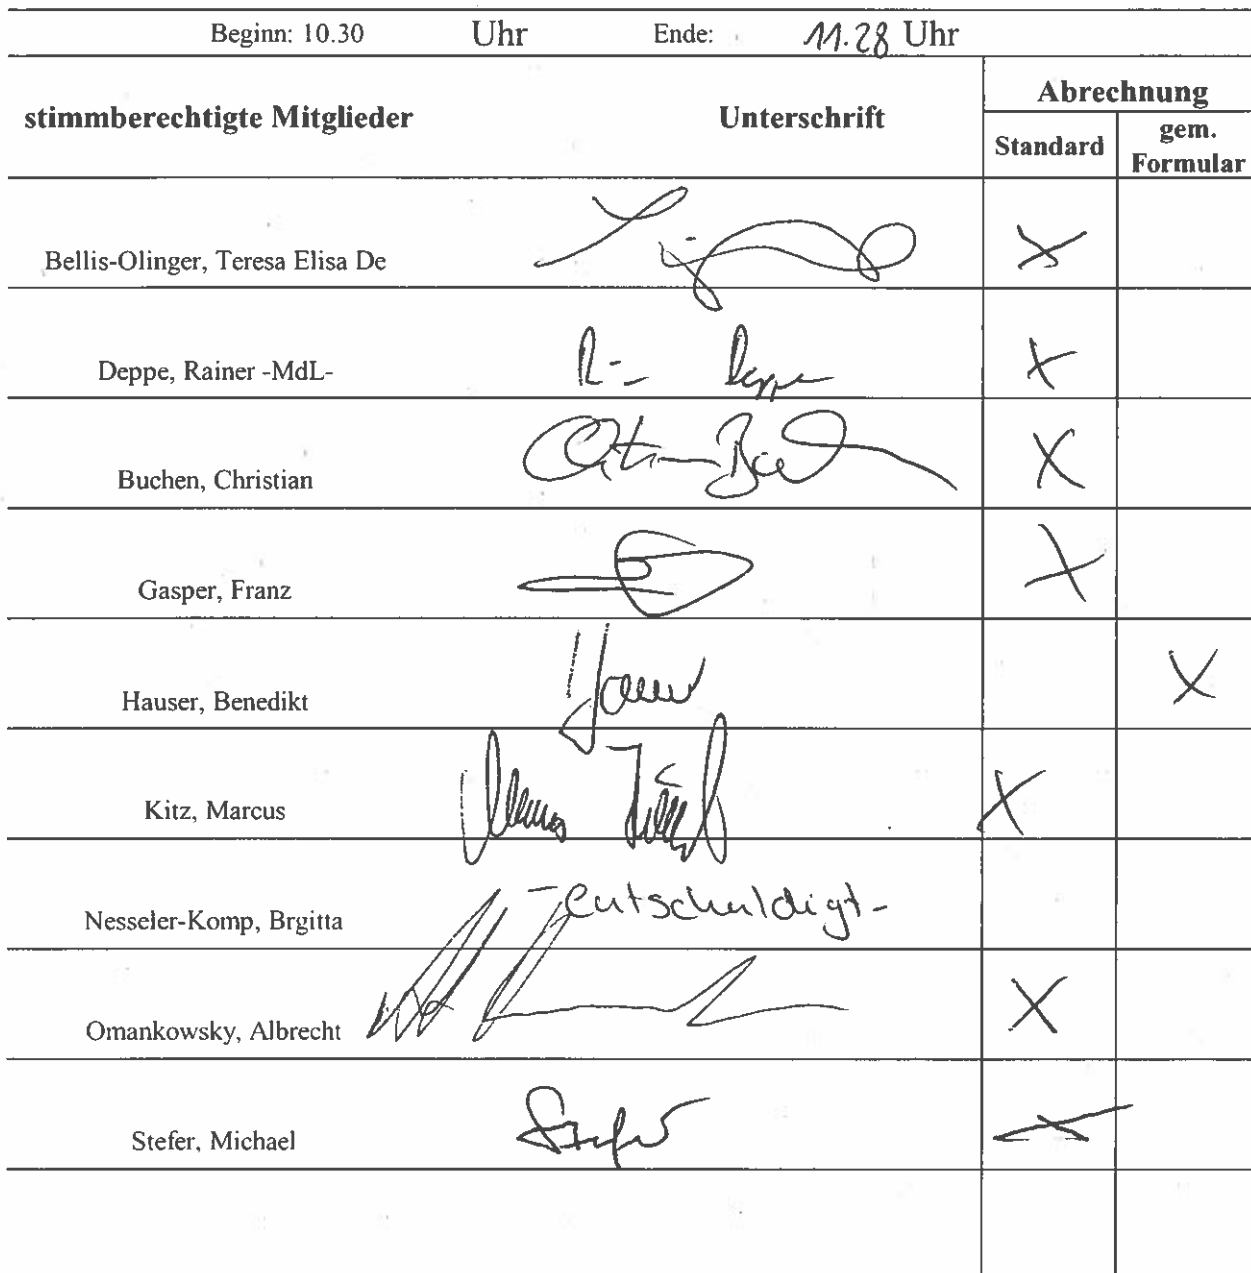 Beginn: 10.30 Uhr Ende: 11.28 Uhr
stimmberechtigte Mitglieder Unterschrift Abrechnung
Standard gem. Formular
Bellis-Olinger, Teresa Elisa De X
Deppe, Rainer -MdL- R. Deppe X
Buchen, Christian X
Gasper, Franz X
Hauser, Benedikt Hauser X
Kitz, Marcus X
Nesseler-Komp, Brgitta - entschuldigt -
Omankowsky, Albrecht X
Stefer, Michael Stefer X